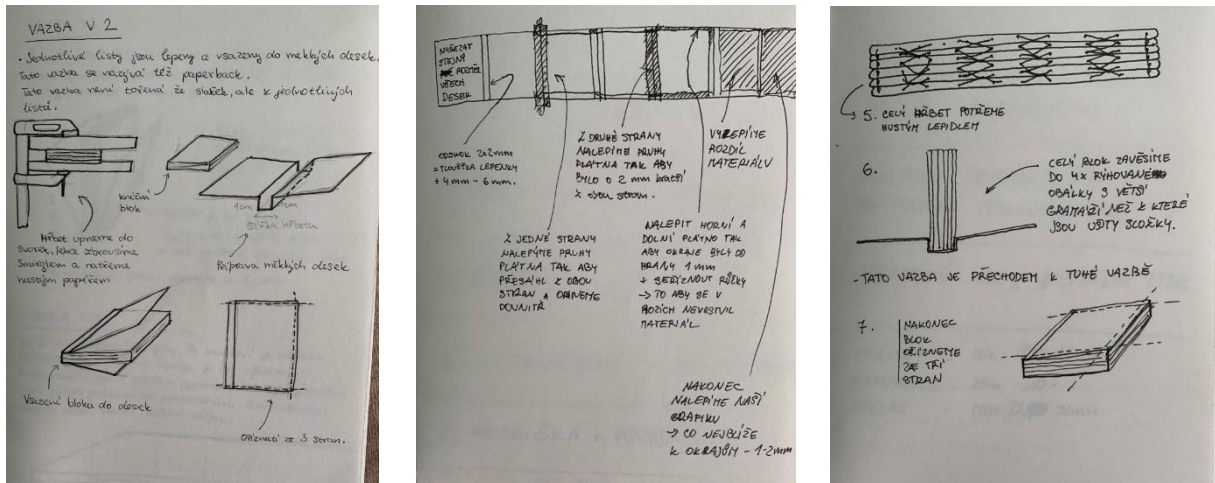 VAZBA V 2
• Jednotlivé listy jsou lepeny a vsazeny do měkkých desek.
Tato vazba se nazývá též paperback.
Tato vazba není tvořená ze složek, ale z jednotlivých
listů.
knižní
blok
1cm
1cm
šířka hřbetu
Hřbet upneme do
svorek, lehce zbrousíme
šmirglem a natřeme
hustým
Příprava měkkých desek
Vsazení bloku do desek
Oříznutí ze 3 stran.
NAŘEZAT
STEJNÝ
ROZMĚR
VŠECH
DESEK
2x2mm
= TLOUŠŤKA LEPENKY
+ 4mm - 6mm.
Z DRUHÉ STRANY
NALEPÍME PRUHY
PLÁTNA TAK ABY
BYLO O 2 mm kratší
Z obou stran.
VYLEPÍME
ROZDÍL
MATERIÁLU
Z JEDNÉ STRANY
NALEPÝME PRUHY
PLÁTNA TAK ABY
PŘESÁHL Z OBOU
STRAN A OHNEME
DOVNITŘ
NALEPIT HORNÍ A
DOLNÍ PLÁTNO TAK
ABY OKRAJE BYLY OD
HRANY 1 mm
+ SEŘÍZNOUT RŮŽKY
→ TO ABY SE V
ROZÍCH NEVRSTVIL
MATERIÁL
NAKONEC
NALEPÍME NAŠÍ
GRAFIKU
→ CO NEJBLÍŽE
K OKRAJŮM - 1-2mm
5. CELÝ HŘBET POTŘEME
HUSTÝM LEPIDLEM
6.
CELÝ BLOK ZAVĚSÍME
DO 4x RÝHOVANÉHO
OBÁLKY S VĚTŠÍ
GRAMÁŽÍ NEŽ K KTERÉ
JSOU UŠITY SLOŽKY.
- TATO VAZBA JE PŘECHODEM K TUHÉ VAZBĚ
7.
NAKONEC
BLOK
OŘÍZNEME
ZE TŘÍ
STRAN